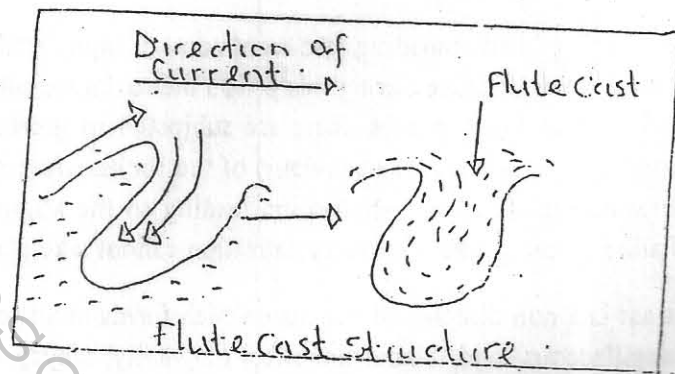 Direction of
Current
Flute Cast
Flute Cast Structure